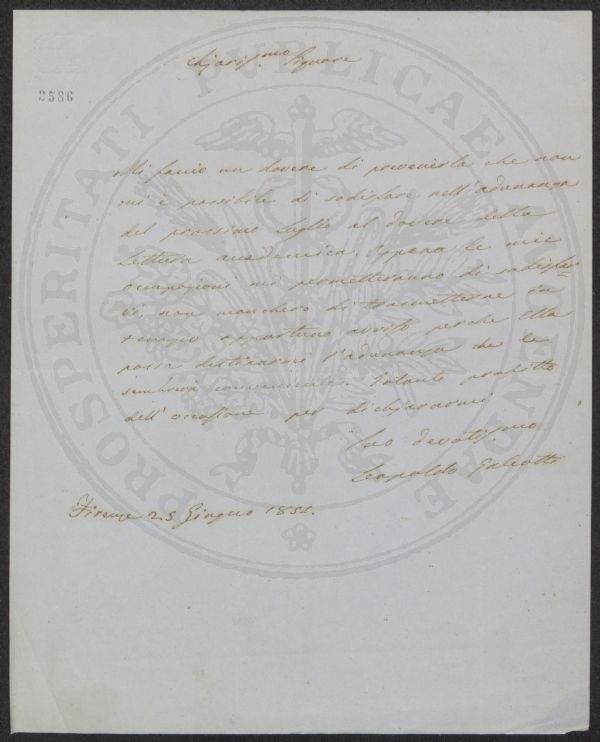 Chjariss.mo Signore
2586
PROSPERITATI PUBLICAE AUGENDAE
Mi faccio un dovere di prevenirla che non
mi è possibile di sodisfare nell'adunanza
del prossimo luglio al dovere della
Lettura accademica. Appena le mie
occupazioni mi permetteranno di sodisfar
vi, non mancherò di trasmetterne in
tempo opportuno avviso perché Ella
possa destinarmi l'adunanza che le
sembrerà conveniente. Intanto profitto
dell'occasione per dichiararmi
Suo devotissimo
Leopoldo Galeotti
Firenze 25 Giugno 185